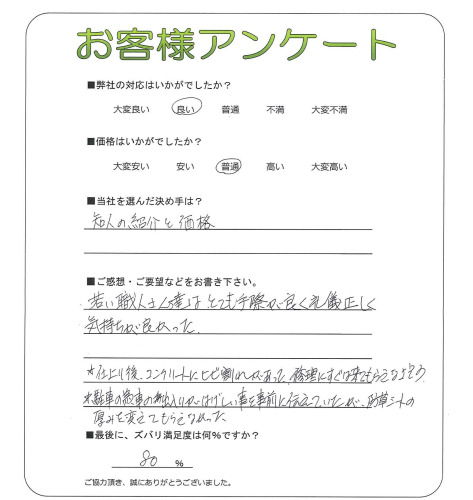 お客様アンケート
■弊社の対応はいかがでしたか？
大変良い 良い 普通 不満 大変不満
■価格はいかがでしたか？
大変安い 安い 普通 高い 大変高い
■当社を選んだ決め手は？
知人の紹介と価格
■ご感想・ご要望などをお書き下さい。
若い職人さん達は とても手際が良く礼儀正しく
気持ちが良かった。
＊仕上り後、コンクリートにヒビ割れがあった、修理にすぐは来てもらえなさそう
出入りがはげしい事を事前に伝えていたが、防草シートの
厚みを変えてもらえなかった。
■最後に、ズバリ満足度は何％ですか？
80 ％
ご協力頂き、誠にありがとうございました。